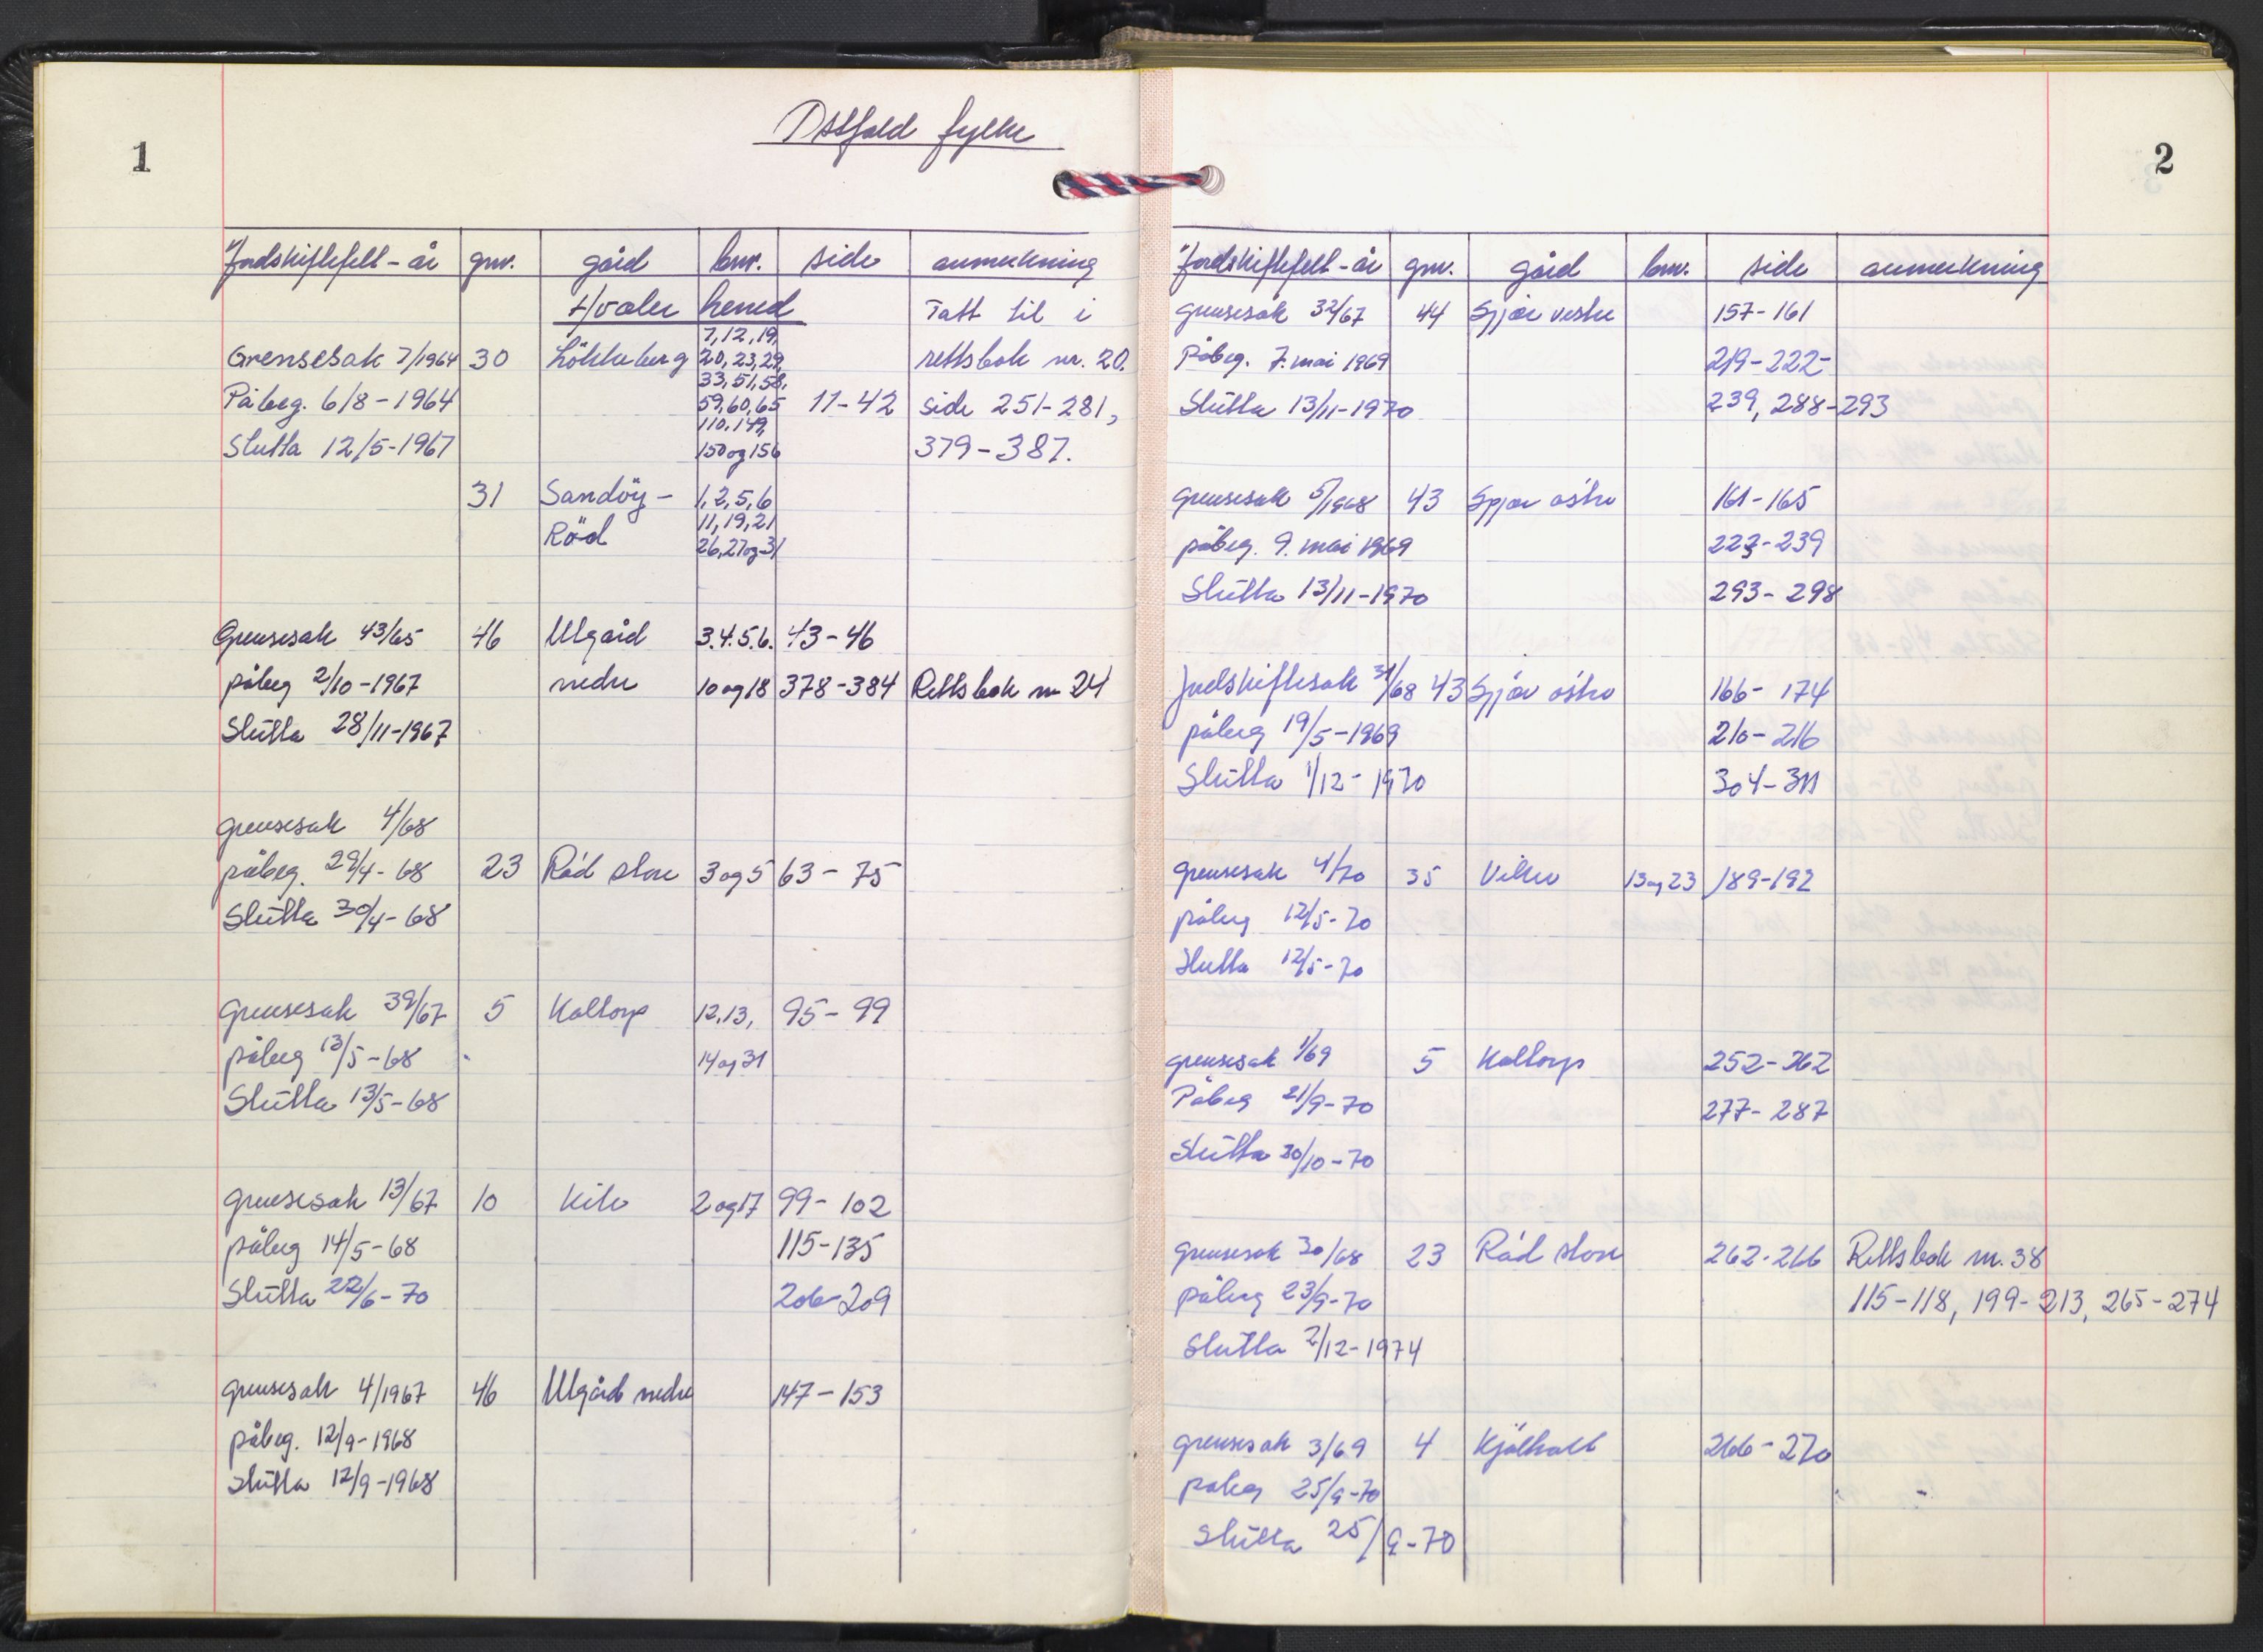 1
Østfold fylke
Jordskiftefelt-år gnr. gård bnr. side anmerkning
Hvaler herred Tatt til i
7, 12, 19,
Grensesak 7/1964 30 Lökkeberg 20, 23, 29, rettsbok nr. 20.
33, 51, 58,
Påbeg. 6/8-1964 59, 60, 65 11-42 side 251-281,
110, 149,
Slutta 12/5-1967 150 og 156 379-387.
31 Sandöy- 1, 2, 5, 6
11, 19, 21
Röd 26, 27 og 31
Grensesak 43/65 46 Ulgård 3.4.5.6. 43-46
påbeg 2/10-1967 nedre 10 og 18 378-384 Rettsbok nr 24
Slutta 28/11-1967
Grensesak 4/68
påbeg. 29/4-68 23 Röd store 3 og 5 63-75
Slutta 30/4-68
Grensesak 39/67 5 Kaltorp 12, 13, 95-99
påbeg 13/5-68 14 og 31
Slutta 13/5-68
Grensesak 13/67 10 Kile 2 og 17 99-102
påbeg 14/5-68 115-135
Slutta 22/6-70 206-209
Grensesak 4/1967 46 Ulgård nedre 147-153
påbeg. 12/9-1968
Slutta 12/9-1968
2
Jordskiftefelt-år gnr. gård bnr. side anmerkning
Grensesak 32/67 44 Spjær vestre 157-161
Påbeg. 7. mai 1969 219-222-
Slutta 13/11-1970 239, 288-293
Grensesak 5/1968 43 Spjær östre 161-165
påbeg. 9. mai 1969 223-239
Slutta 13/11-1970 293-298
Jordskiftesak 31/68 43 Spjær östre 166-174
påbeg 19/5-1969 210-216
Slutta 1/12-1970 304-311
Grensesak 4/70 35 Viker 13 og 23 189-192
påbeg 12/5-70
Slutta 12/5-70
Grensesak 1/69 5 Kaltorp 252-262
Påbeg 21/9-70 277-287
Slutta 30/10-70
Grensesak 30/68 23 Röd store 262-266 Rettsbok nr. 38
påbeg 23/9-70 115-118, 199-213, 265-274
Slutta 2/12-1974
Grensesak 3/69 4 Kjölholt 266-270
påbeg 25/9-70
Slutta 25/9-70